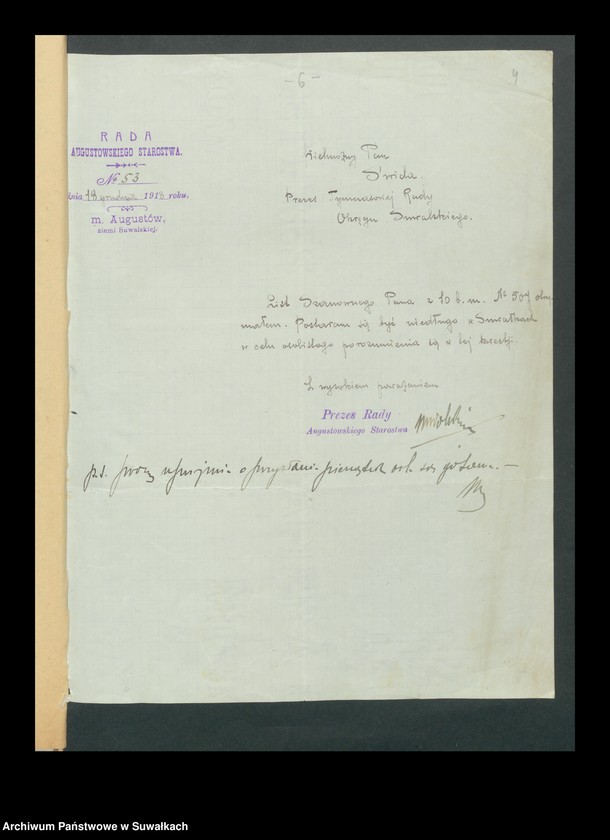 – 6 –
4
RADA
AUGUSTOWSKIEGO STAROSTWA.
№ 53
dnia 13 grudnia 1918 roku.
m. Augustów,
ziemi Suwalskiej.
Wielmożny Pan
Świda.
Prezes Tymczasowej Rady
Okręgu Suwalskiego.
List Szanownego Pana z 10 b.m. № 507 otrzy-
małem. Postaram się być niedługo w Suwałkach
w celu osobistego porozumienia się w tej kwestji.
Z wysokiem poważaniem
Prezes Rady
Augustowskiego Starostwa
p.s. proszę uprzejmie o przysłanie pieniędzy
Archiwum Państwowe w Suwałkach